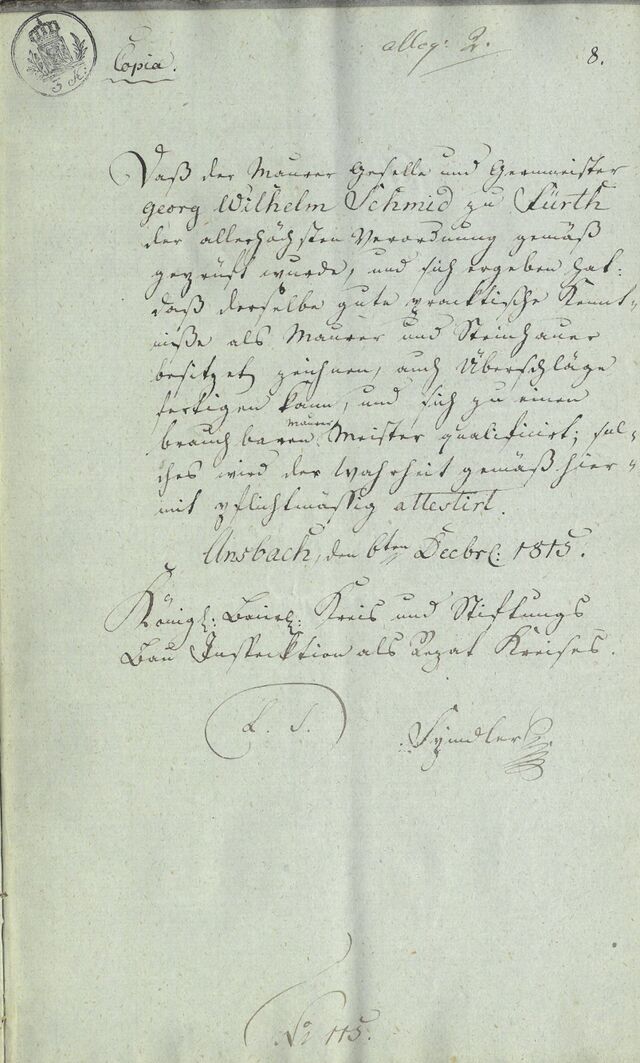 3 K:
Copia.
alleg: 2.
8.
Daß der Maurer Geselle und Germeister
Georg Wilhelm Schmid zu Fürth
der allerhöchsten Verordnung gemäß
geprüft wurde, und sich ergeben hat:
daß derselbe gute pracktische Kennt-
niße als Maurer und Steinhauer
besitzet zeichnen, auch Überschläge
fertigen kann, und sich zu einen
brauchbaren Maurer Meister qualificirt; sol-
ches wird der Wahrheit gemäß hier-
mit pflichtmässig attestirt.
Ansbach, den 6ten Decbr: 1815.
Königl: Baierl: Kreis und Stiftungs
Bau Inspecktion als Rezat Kreises.
L. S.
No 115.